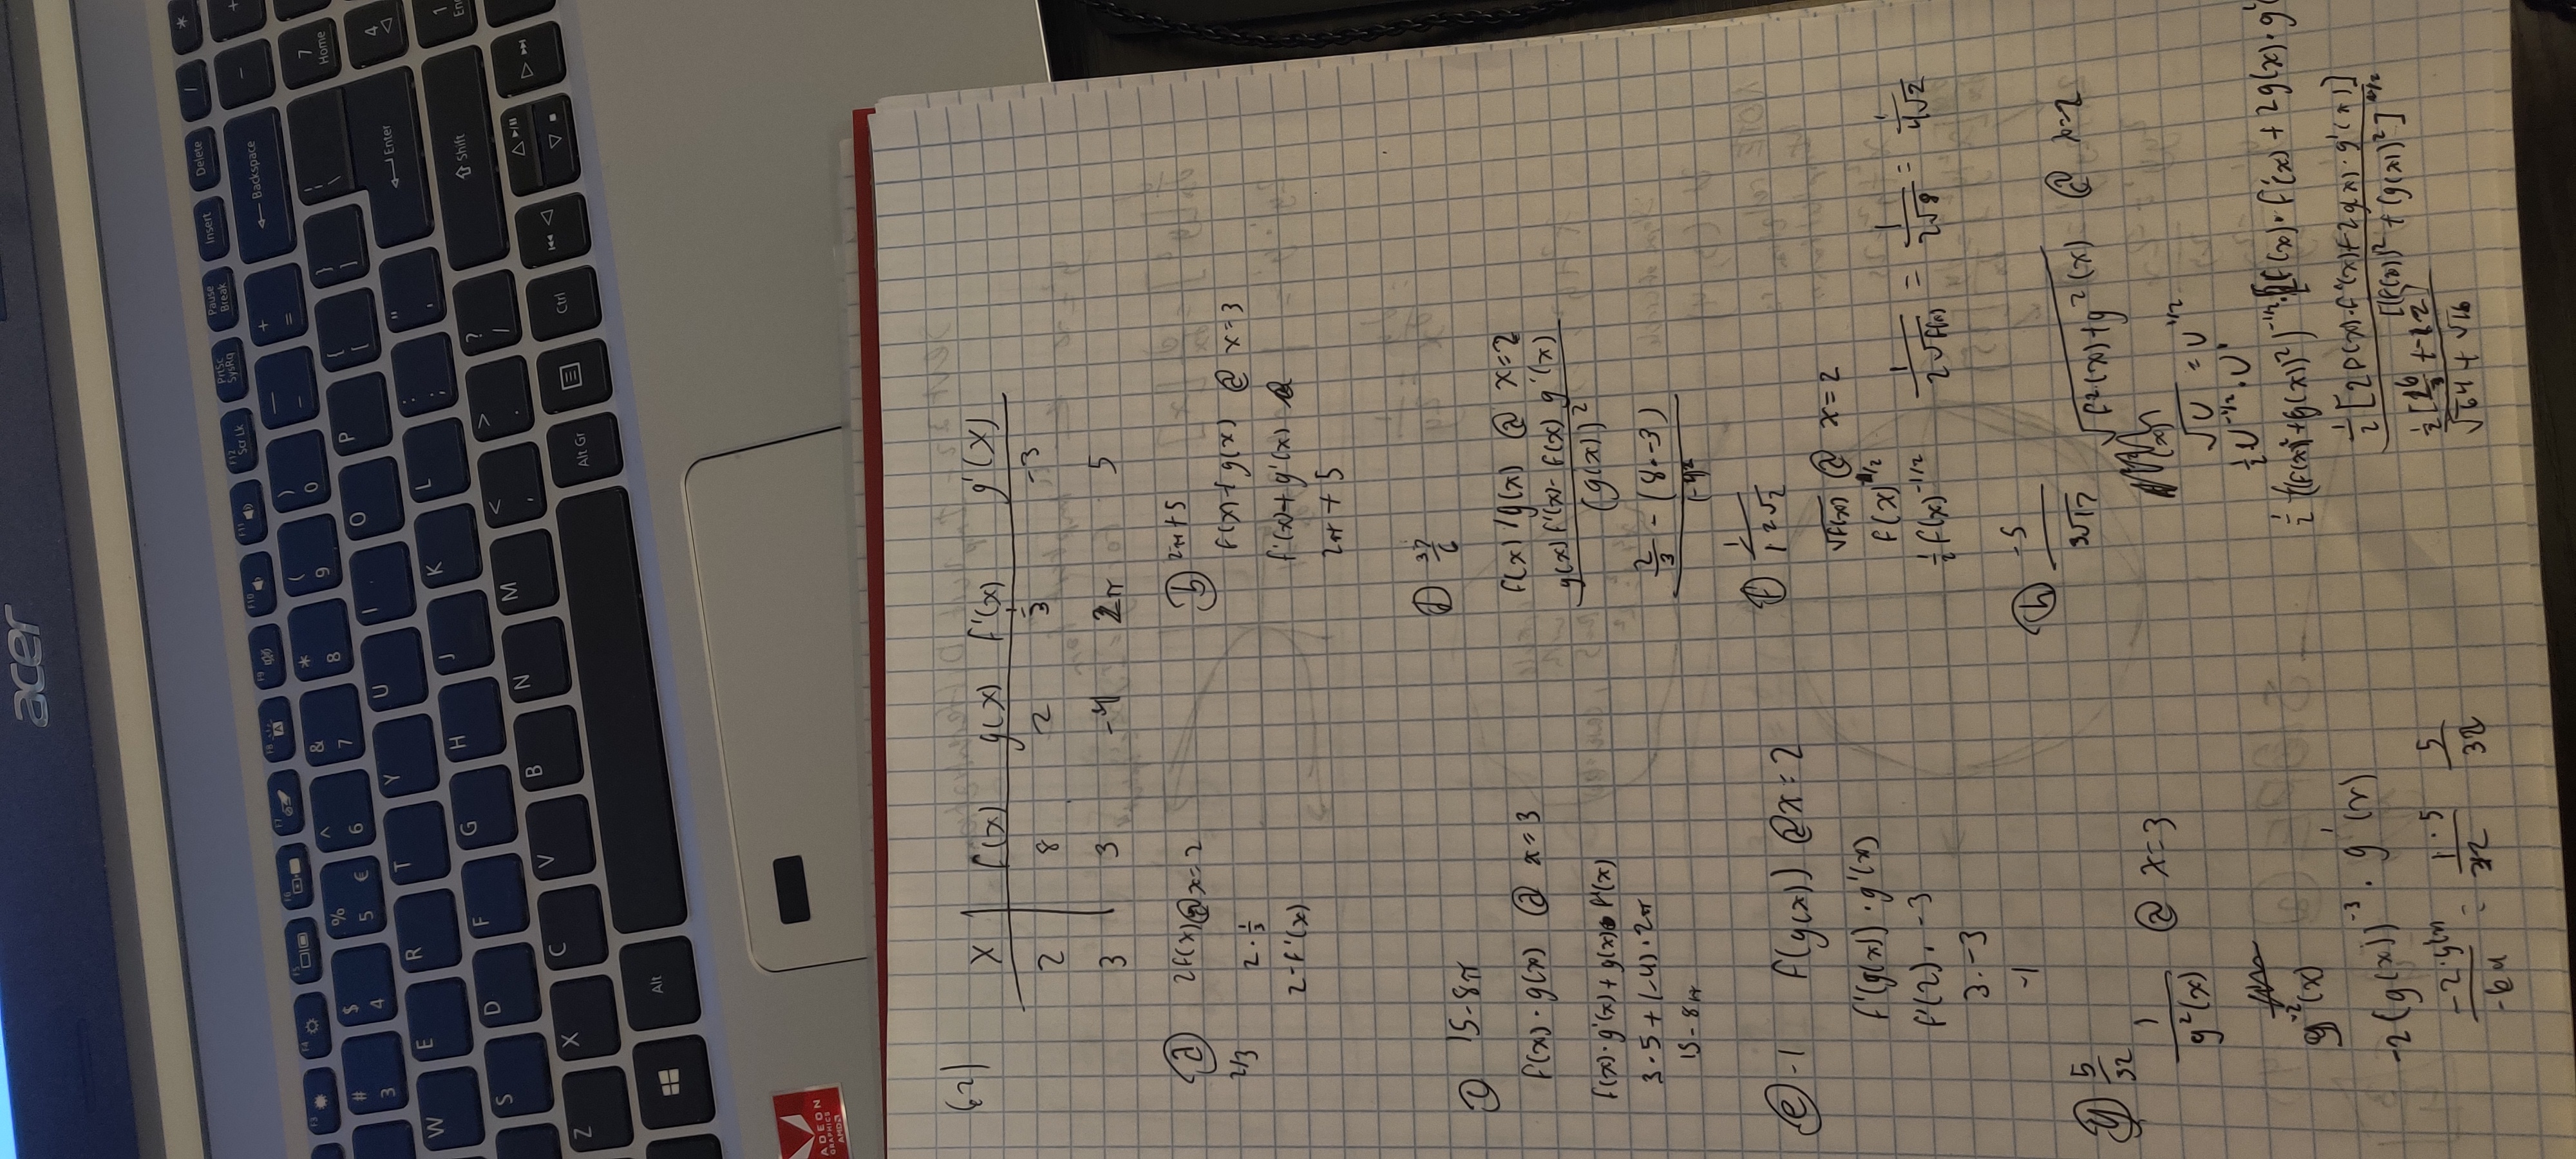 acer
F3 F4 F5 F6 F7 F8 F9 F10 F11 F12 Scr Lk PrtSc SysRq Pause Break Insert Delete / *
# 3 $ 4 % 5 € ^ 6 & 7 * 8 ( 9 ) 0 _ - + = ← Backspace - +
W E R T Y U I O P { [ } ] | \ 7 Home
S D F G H J K L : ; " ' ← Enter 4
Z X C V B N M < , > . ? / ⇧ Shift 1
Alt Alt Gr Ctrl
ADEON
GRAPHICS
AMD
62)
x f(x) g(x) f'(x) g'(x)
2 8 2 1/3 -3
3 3 -4 2π 5
a 2f(x) @ x=2
2/3 2·1/3
2·f'(x)
b 2π+5
f(x)+g(x) @ x=3
f'(x)+g'(x)
2π+5
c 15-8π
f(x)·g(x) @ x=3
f(x)·g'(x)+g(x)·f'(x)
3·5+(-4)·2π
15-8π
d 37/6
f(x)/g(x) @ x=2
g(x)f'(x)-f(x)g'(x)
(g(x))²
2/3-(8·-3)
e -1 f(g(x)) @ x=2
f'(g(x))·g'(x)
f'(2)·-3
3·-3
-1
f
√f(x) @ x=2
f(x)^1/2
1/2 f(x)^-1/2 1/2√f(x) = 1/2√8 = 1/4√2
g 5/32
1/g²(x) @ x=3
g^-2(x)
-2(g(x))^-3·g'(x)
-2·g'(x)/-64 = 1·5/32 5/32
h -5/3√17 √f²(x)+g²(x) @ x=2
√U = U^1/2
1/2 U^-1/2·U'
1/2((f(x)²+(g(x))²)^-1/2·[2f(x)·f'(x)+2g(x)·g'(
1/2[2f(x)·f'(x)+2g(x)·g'(x)]
[(f(x))²+(g(x))²]^1/2
1/2[16/3+-12]
√64+√16